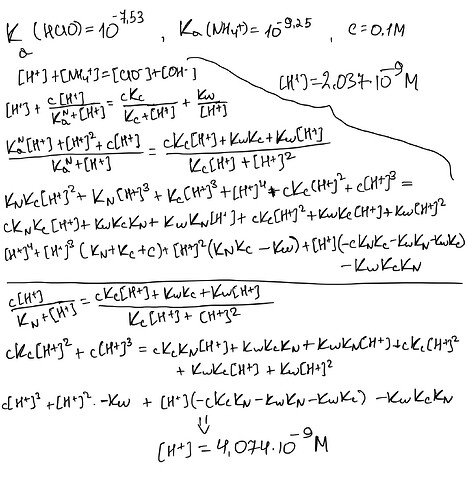 Ka(HClO)=10^-7,53 , Ka(NH4+)=10^-9,25 , c=0.1M
[H+]+[NH4+]=[ClO-]+[OH-]
[H+]=2,037·10^-9 M
[H+] + c[H+]/(KaN+[H+]) = cKc/(Kc+[H+]) + Kw/[H+]
(KaN[H+]+[H+]^2+c[H+])/(KaN+[H+]) = (cKc[H+]+KwKc+Kw[H+])/(Kc[H+]+[H+]^2)
KNKc[H+]^2+KN[H+]^3+Kc[H+]^3+[H+]^4+cKc[H+]^2+c[H+]^3=
cKNKc[H+]+KwKcKN+KwKN[H+]+cKc[H+]^2+KwKc[H+]+Kw[H+]^2
[H+]^4+[H+]^3(KN+Kc+c)+[H+]^2(KNKc-Kw)+[H+](-cKNKc-KwKN-KwKc)
-KwKcKN
c[H+]/(KN+[H+]) = (cKc[H+]+KwKc+Kw[H+])/(Kc[H+]+[H+]^2)
cKc[H+]^2+c[H+]^3=cKcKN[H+]+KwKcKN+KwKN[H+]+cKc[H+]^2
+KwKc[H+]+Kw[H+]^2
c[H+]^3+[H+]^2·-Kw+[H+](-cKcKN-KwKN-KwKc)-KwKcKN
⇓
[H+]=4,074·10^-9 M